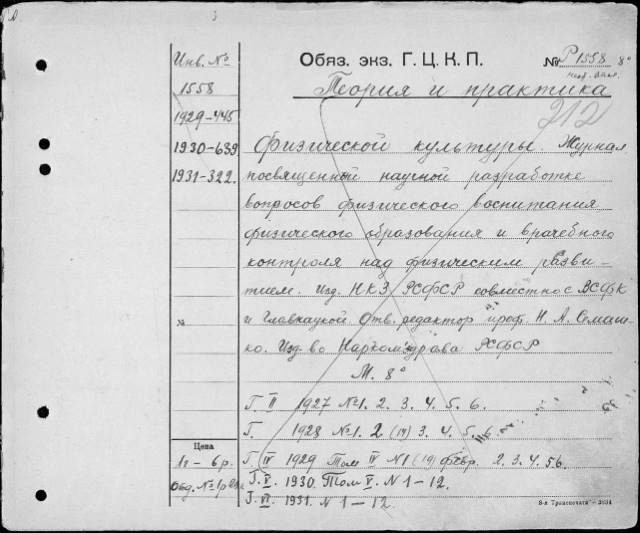 Инв. №
1558
1929-445
1930-689
1931-322.
№
Цена
1г – 6 р.
Отд. №
Обяз. экз. Г. Ц. К. П. № Р 1558 8°
Теория и практика
212
физической культуры. Журнал
посвященной научной разработке
вопросов физического воспитания
физического образования и врачебного
контроля над физическим разви-
тием. Изд. НКЗ РСФСР совместно с ВСФК
и Главнаукой Отв. редактор проф. Н. А. Семаш-
ко. Изд-во Наркомздрава РСФСР
М. 8°
Г. II 1927 №1. 2. 3. 4. 5. 6.
Г. 1928 №1. 2 (14) 3. 4. 5. 6.
Г. IV 1929 Том IV N1 (19) февр. 2. 3. 4. 5 6.
Г. V. 1930. Том V. N 1–12.
Г. VI. 1931. N 1–12.
8-я Транспечати – 3634